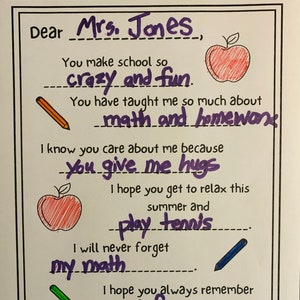 Dear Mrs. Jones,
You make school so
crazy and fun.
You have taught me so much about
math and homework
I know you care about me because
you give me hugs
I hope you get to relax this
summer and
play tennis.
I will never forget
my math.
I hope you always remember